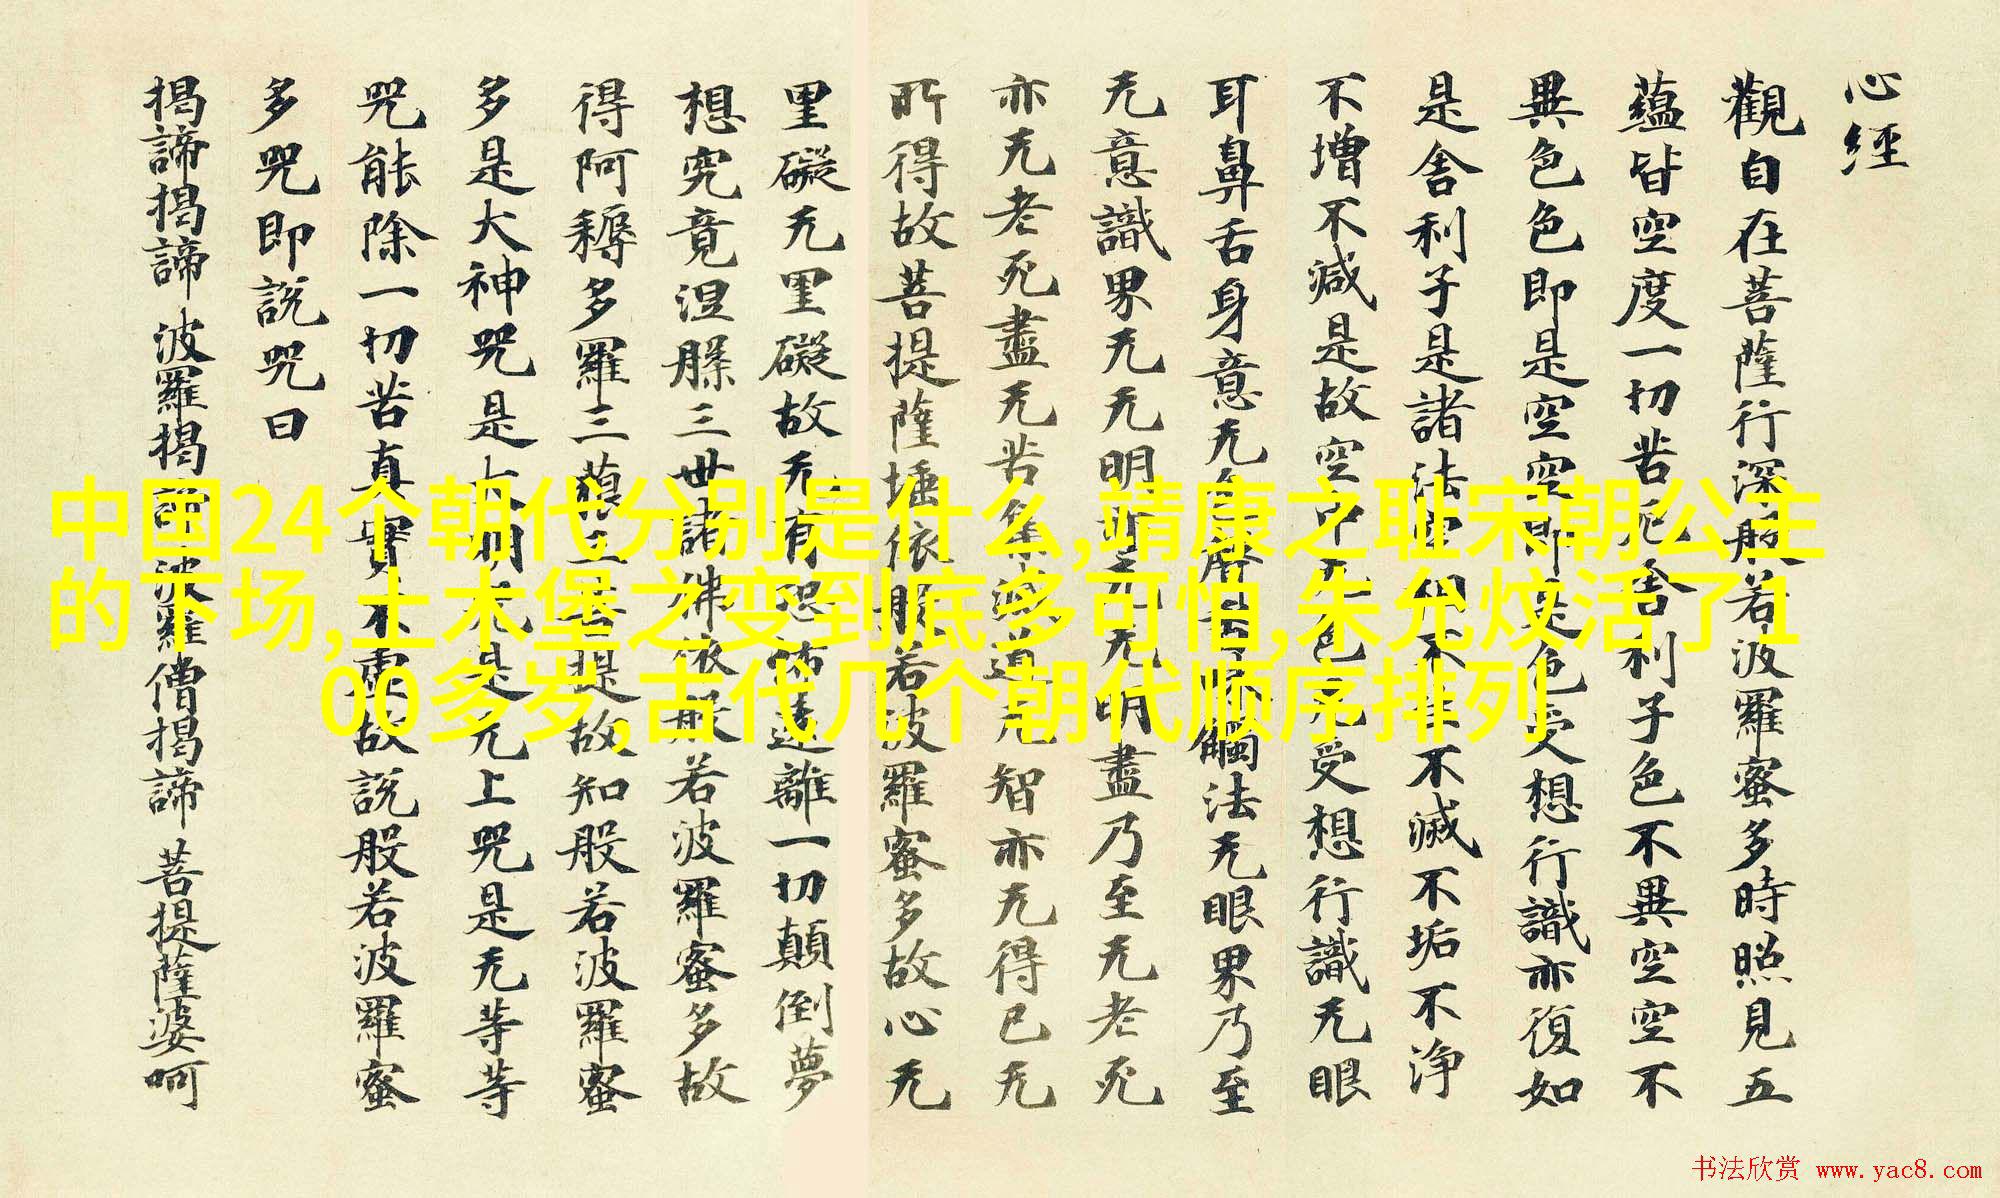 心經
觀自在菩薩行深般若波羅蜜多時照見五
蘊皆空度一切苦厄舍利子色不異空空不
異色色即是空空即是色受想行識亦復如
是舍利子是諸法空相不生不滅不垢不淨
不增不減是故空中无色无受想行識无眼
耳鼻舌身意无色聲香味觸法无眼界乃至
无意識界无无明亦无无明盡乃至无老死
亦无老死盡无苦集滅道无智亦无得已无
所得故菩提薩埵依般若波羅蜜多故心无
罣礙无罣礙故无有恐怖遠離一切顛倒夢
想究竟涅槃三世諸佛依般若波羅蜜多故
得阿耨多羅三藐三菩提故知般若波羅蜜
多是大神咒是大明咒是无上咒是无等等
咒能除一切苦真實不虛故說般若波羅蜜
多咒即說咒曰
揭諦揭諦 波羅揭諦 波羅僧揭諦 菩提薩婆呵
中国24个朝代分别是什么,靖康之耻宋朝公主
的下场,土木堡之变到底多可怕,朱允炆活了1
00多岁,古代几个朝代顺序排列
书法欣赏 www.yac8.com